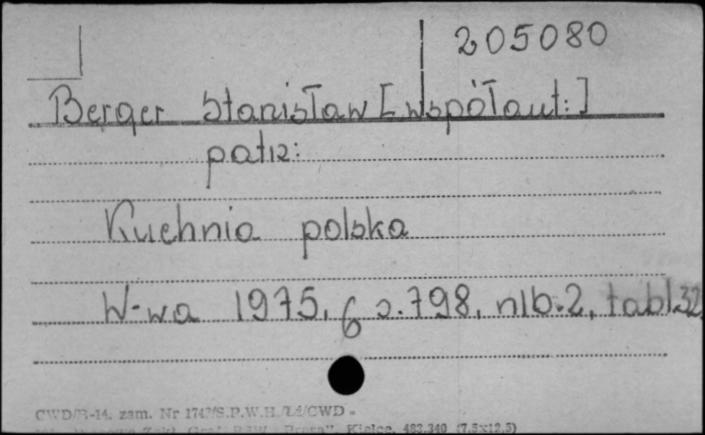 205080
Berger Stanisław [współaut:]
patrz:
Kuchnia polska
W-wa 1975, s. 798, nlb. 2, tabl. 32
6
CWD/B-14. zam. Nr 1747/S.P.W.H./Ł4/CWD -
Kielce, 483.340 (7,5x12,5)